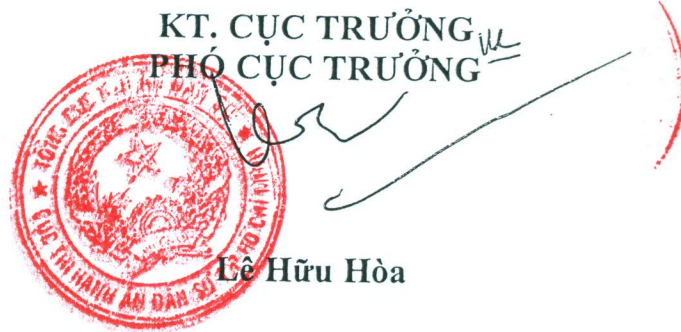 KT. CỤC TRƯỞNG
PHÓ CỤC TRƯỞNG
TỔNG CỤC THI HÀNH ÁN DÂN SỰ
CỤC THI HÀNH ÁN DÂN SỰ TP HỒ CHÍ MINH
Lê Hữu Hòa